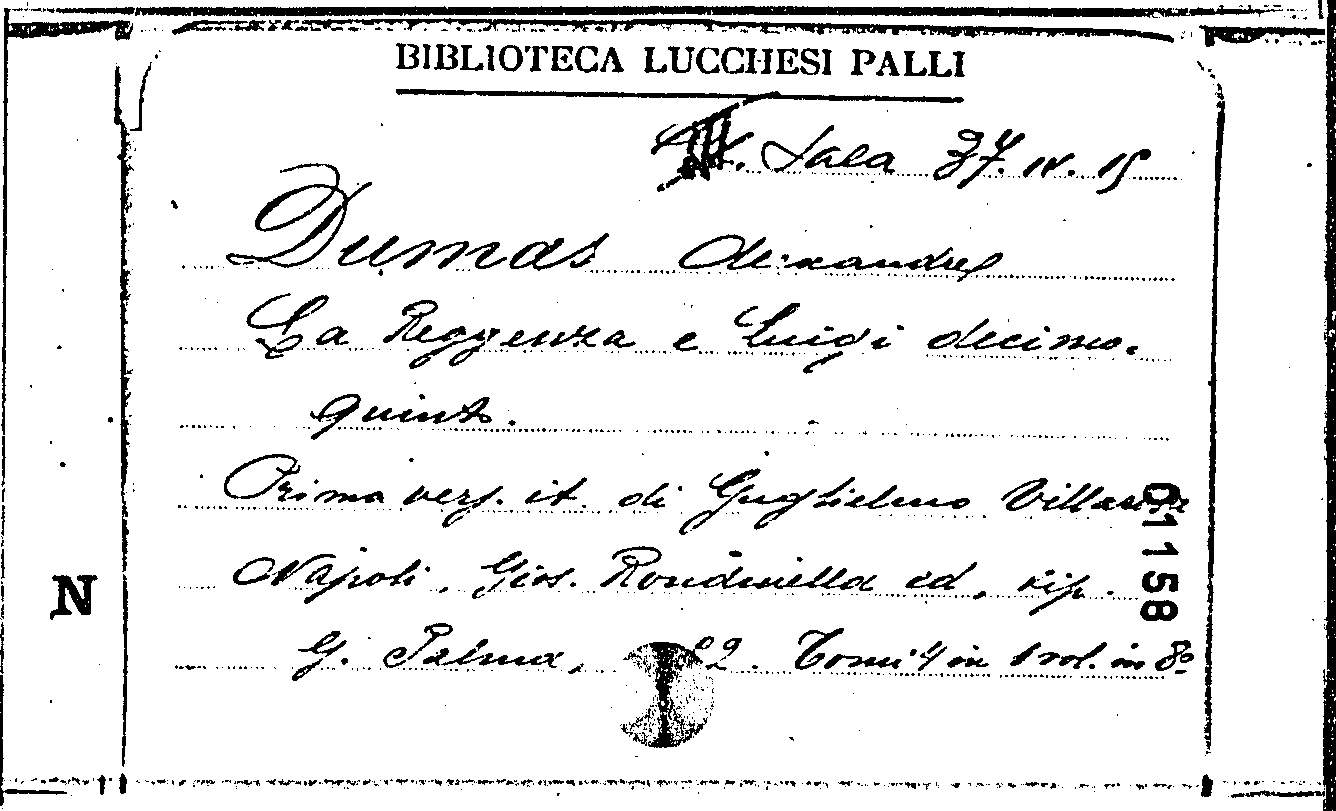 BIBLIOTECA LUCCHESI PALLI
Sala 37. IV. 15
Dumas Alexandre
La Reggenza e Luigi decimo.
quinto.
Prima vers. it. di Guglielmo Villarosa
Napoli, Gios. Rondinella ed, tip.
G. Palma, 22. Tomi 4 in 1 vol. in 8º
N
01158